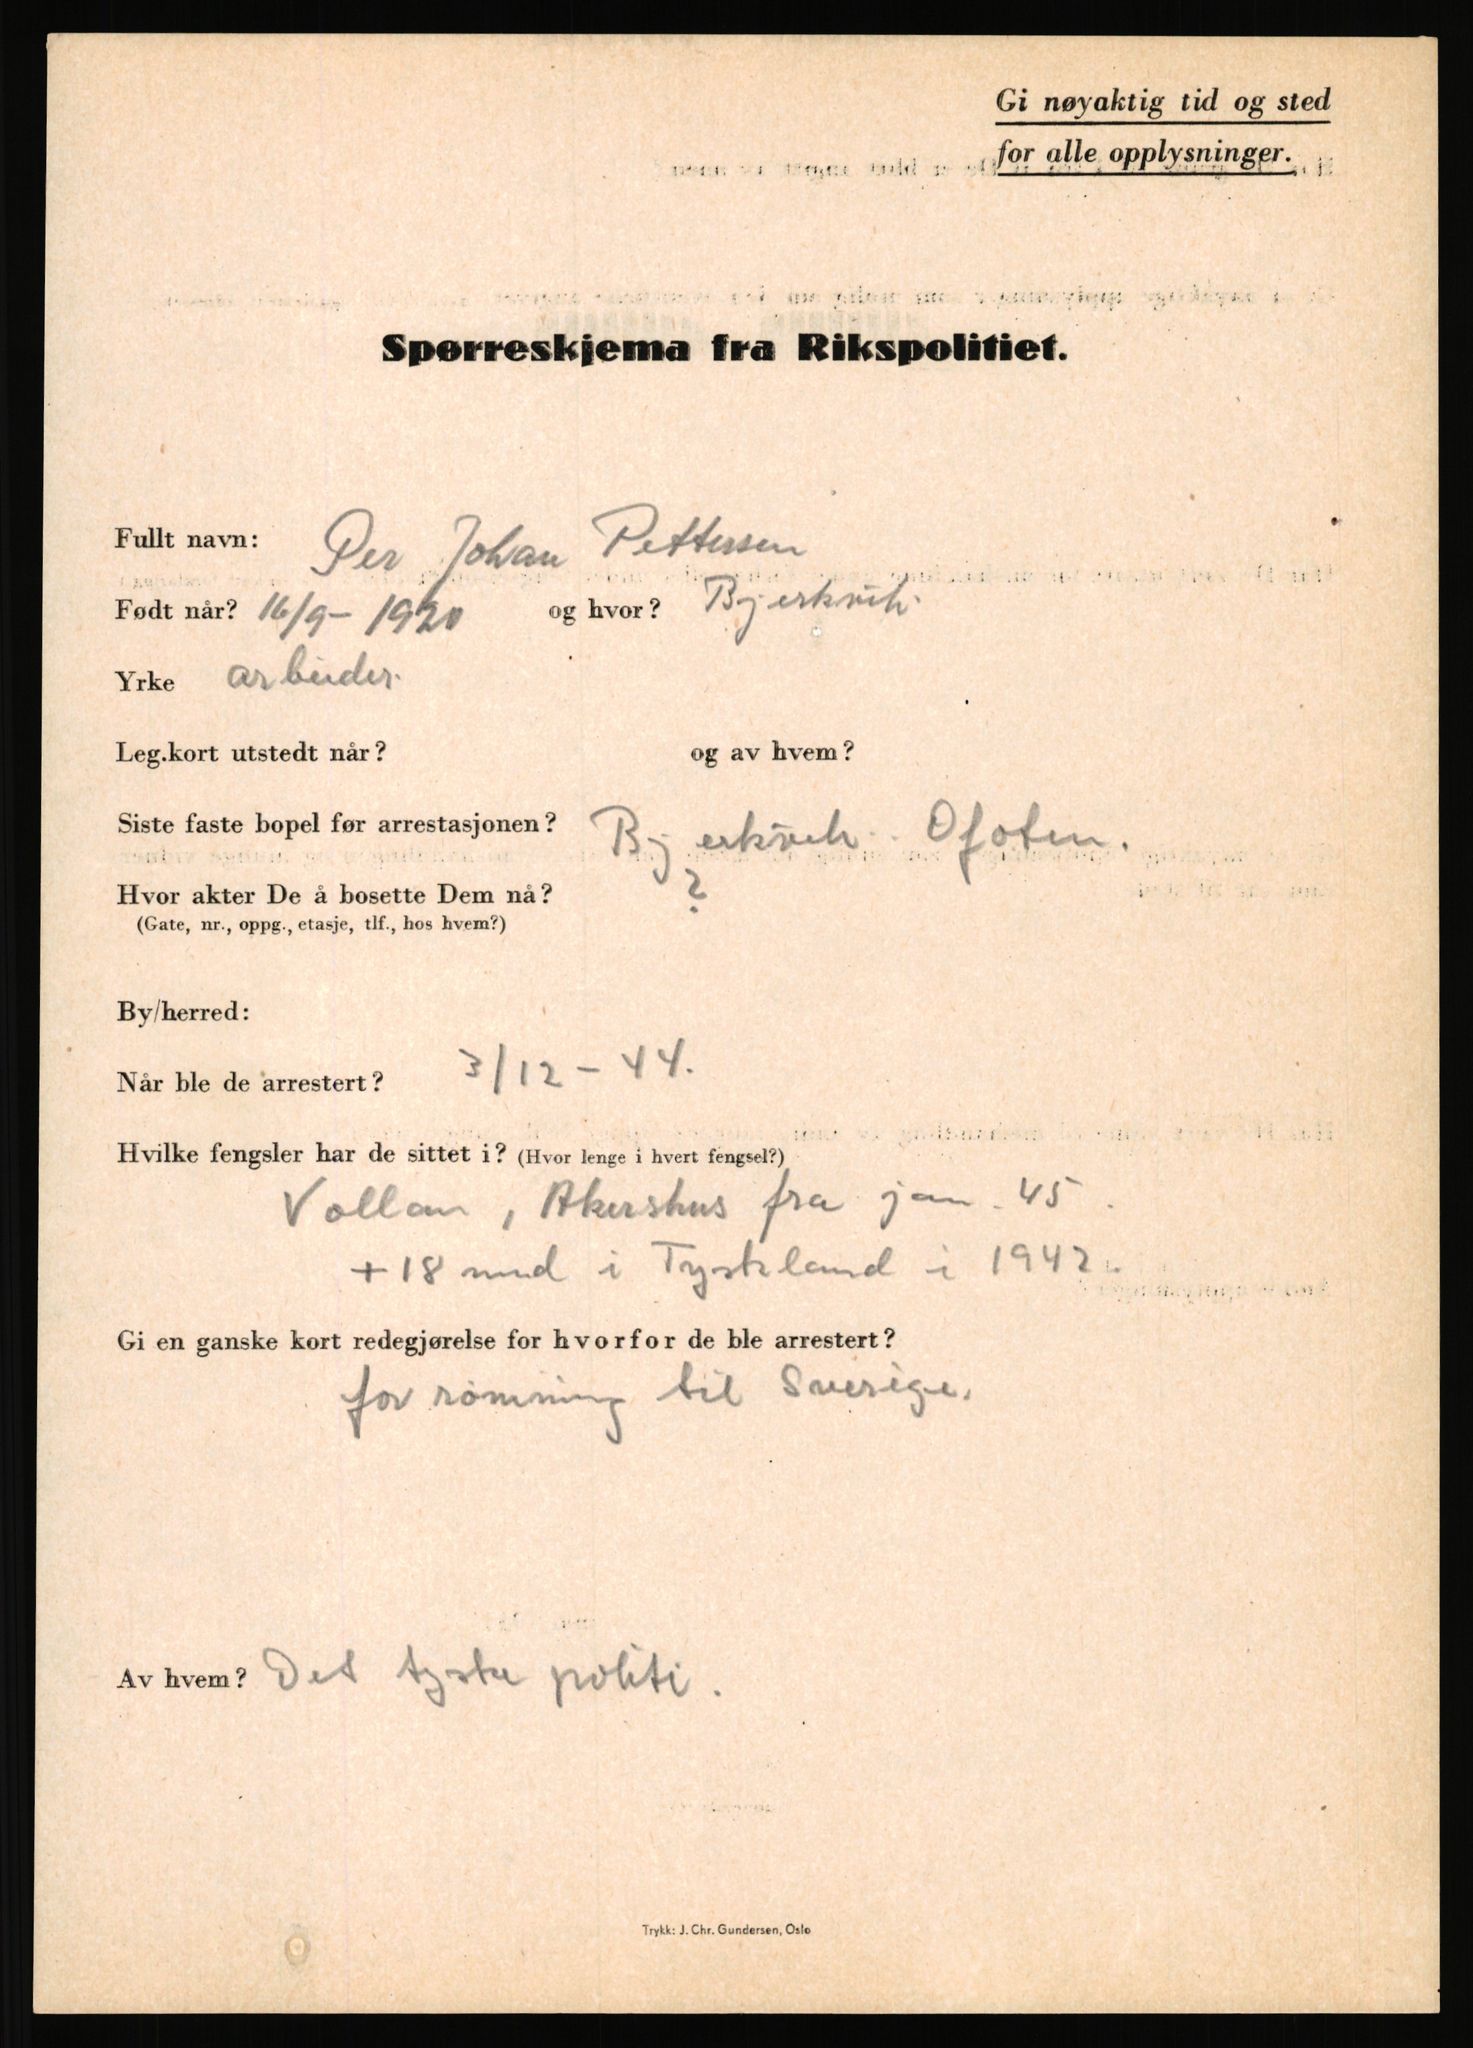 Gi nøyaktig tid og sted
for alle opplysninger.
Spørreskjema fra Rikspolitiet.
Fullt navn: Per Johan Pettersen
Født når? 16/9-1920 og hvor? Bjerkvik.
Yrke arbeider.
Leg.kort utstedt når? og av hvem?
Siste faste bopel før arrestasjonen? Bjerkvik. Ofoten.
Hvor akter De å bosette Dem nå? ?
(Gate, nr., oppg., etasje, tlf., hos hvem?)
By/herred:
Når ble de arrestert? 3/12-44.
Hvilke fengsler har de sittet i? (Hvor lenge i hvert fengsel?)
Vollan, Akershus fra jan. 45.
+ 18 mnd i Tyskland i 1942.
Gi en ganske kort redegjørelse for hvorfor de ble arrestert?
for rømning til Sverige.
Av hvem? Det tyske politi.
Trykk: J. Chr. Gundersen, Oslo